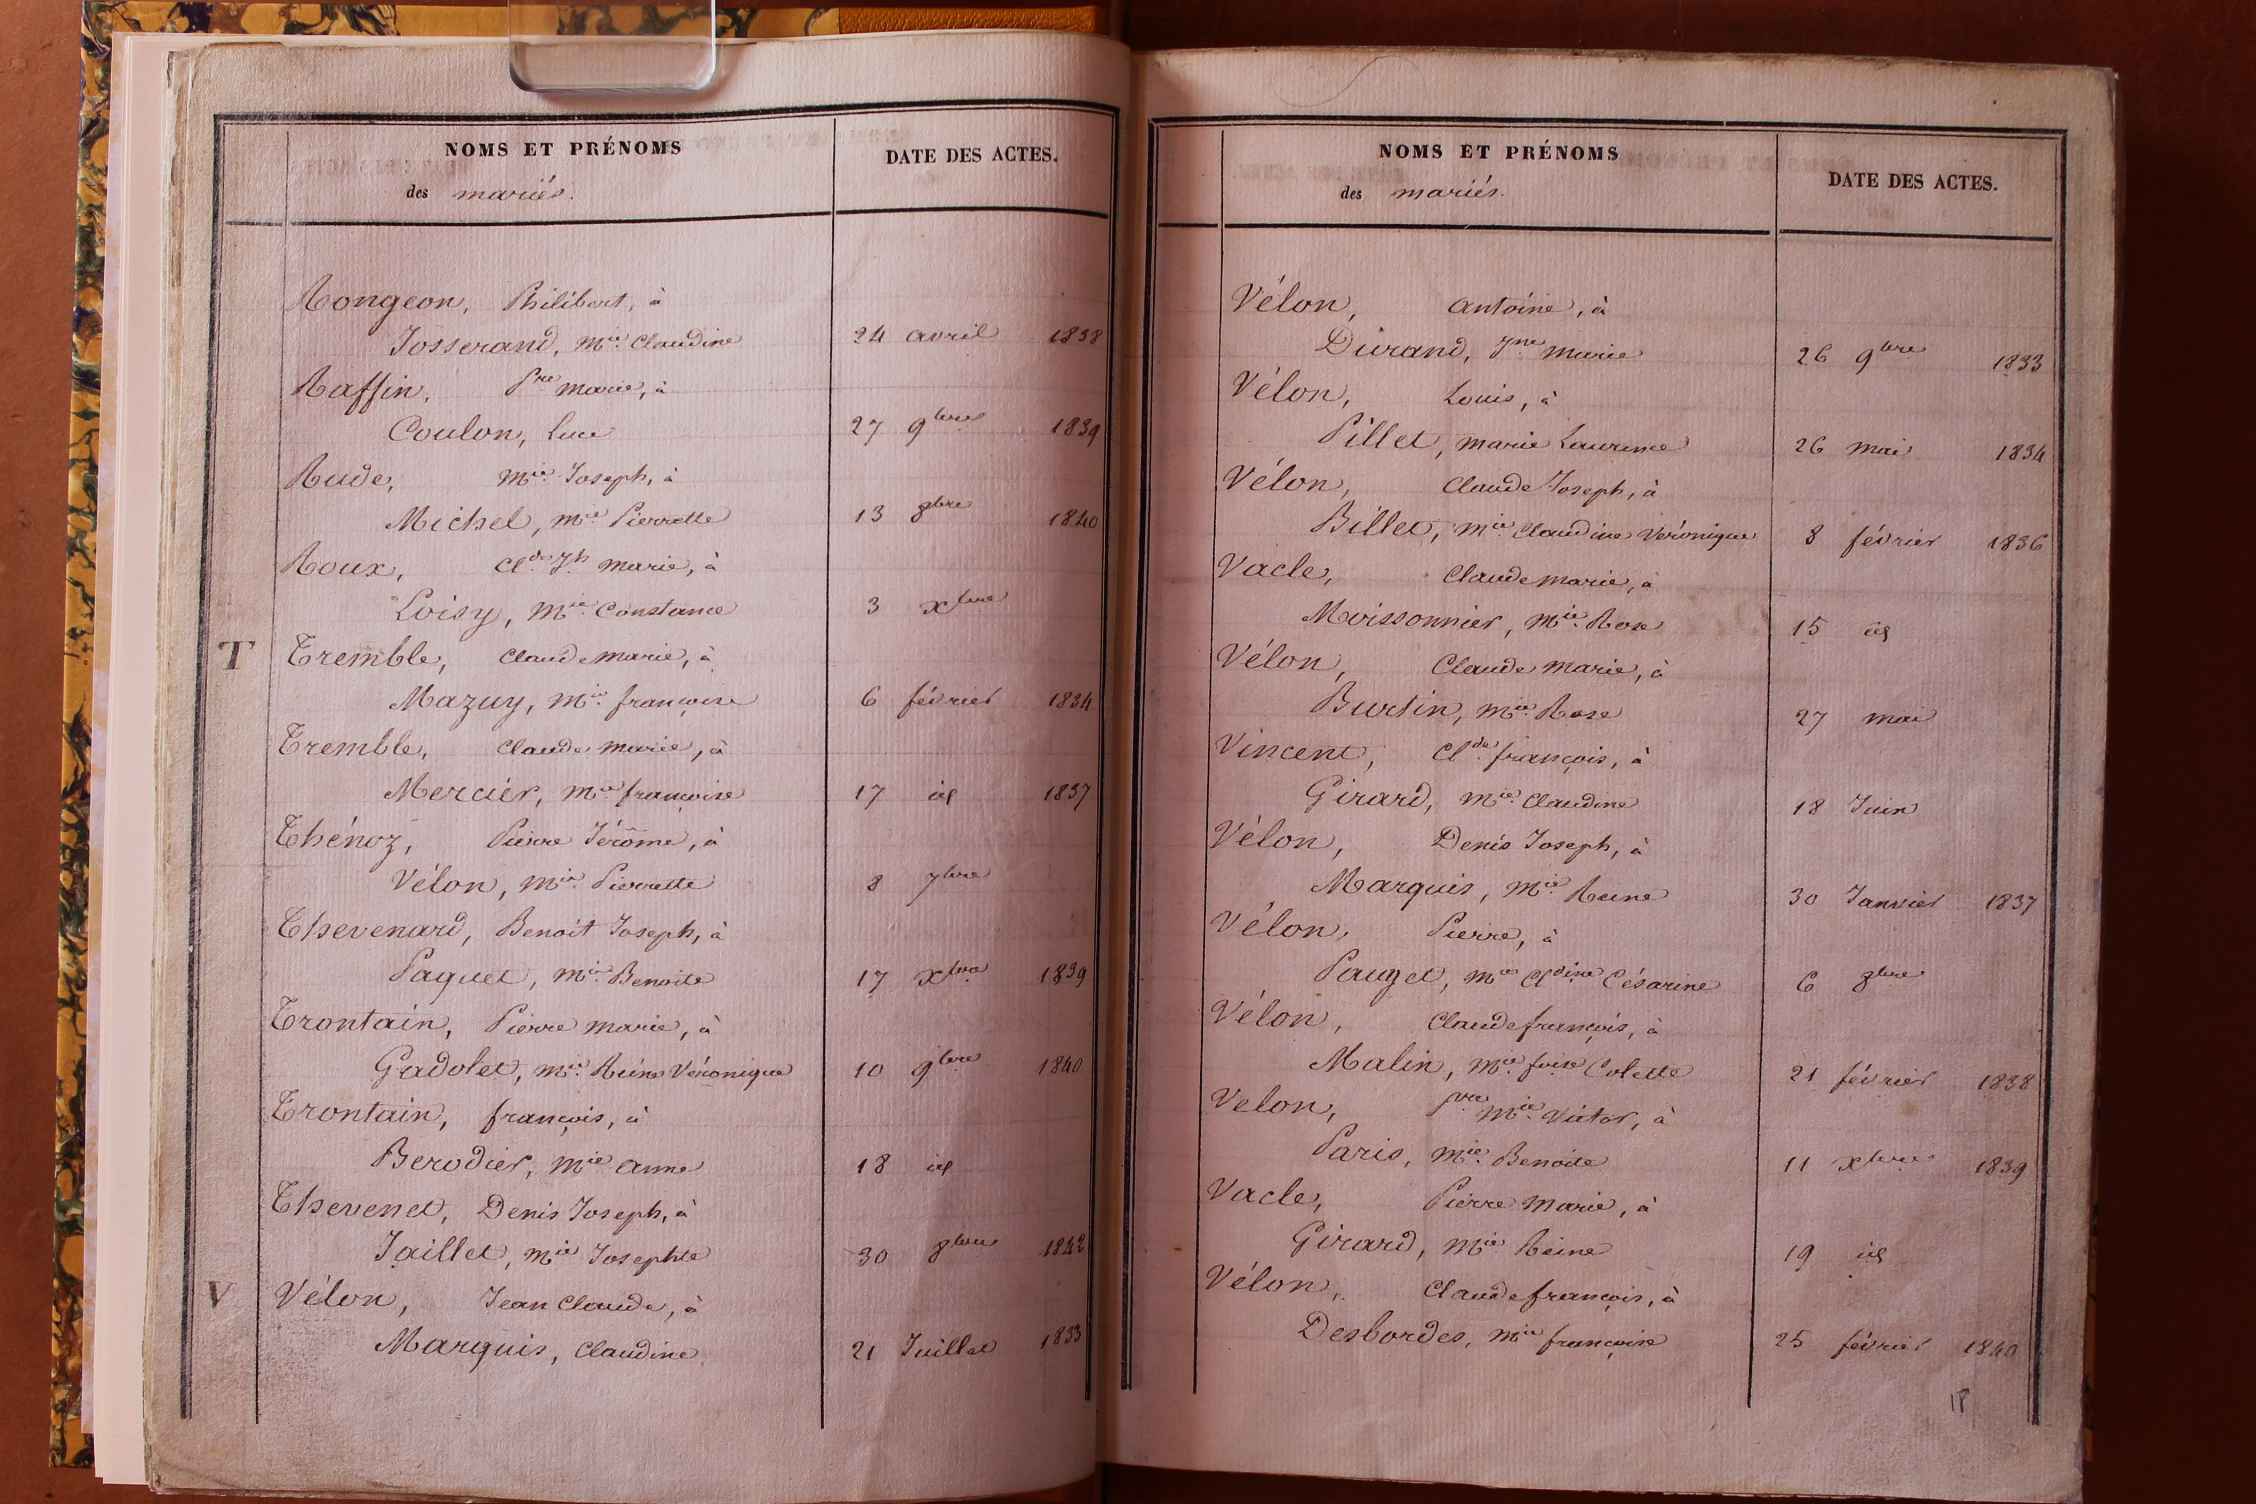 NOMS ET PRÉNOMS
des mariés.
DATE DES ACTES.
Rongeon, Philibert, à
Josserand, Mie Claudine 24 avril 1838
Raffin, Pre Marie, à
Coulon, Luce 27 9bre 1839
Rude, Mie Joseph, à
Michel, Mie Pierrette 13 8bre 1840
Roux, Clde Jh Marie, à
Loisy, Mie Constance 3 Xbre
T Tremble, Claude Marie, à
Mazuy, Mie françoise 6 février 1834
Tremble, Claude Marie, à
Mercier, Mie françoise 17 id 1837
Thénoz, Pierre Jérôme, à
Vélon, Mie Pierrette 8 7bre
Thevenard, Benoit Joseph, à
Paquet, Mie Benoite 17 Xbre 1839
Trontain, Pierre Marie, à
Gadolet, Mie Reine Véronique 10 9bre 1840
Trontain, françois, à
Berodier, Mie Anne 18 id
Thevenet, Denis Joseph, à
Jaillet, Mie Josephte 30 8bre 1842
V Vélon, Jean Claude, à
Marquis, Claudine 21 Juillet 1833
NOMS ET PRÉNOMS
des mariés.
DATE DES ACTES.
Vélon, Antoine, à
Durand, Jne Marie 26 9bre 1833
Vélon, Louis, à
Pillet, Marie Laurence 26 mai 1834
Vélon, Claude Joseph, à
Billet, Mie Claudine Véronique 8 février 1836
Vacle, Claude Marie, à
Moissonnier, Mie Rose 15 id
Vélon, Claude Marie, à
Burtin, Mie Rose 27 mai
Vincent, Clde françois, à
Girard, Mie Claudine 18 Juin
Vélon, Denis Joseph, à
Marquis, Mie Reine 30 Janvier 1837
Vélon, Pierre, à
Pauget, Mie Cldine Césarine 6 8bre
Vélon, Claude françois, à
Malin, Mie foise Colette 21 février 1838
Velon, Pre Mie Victor, à
Paris, Mie Benoite 11 Xbre 1839
Vacle, Pierre Marie, à
Girard, Mie Reine 19 id
Vélon, Claude françois, à
Desbordes, Mie françoise 25 février 1840
18